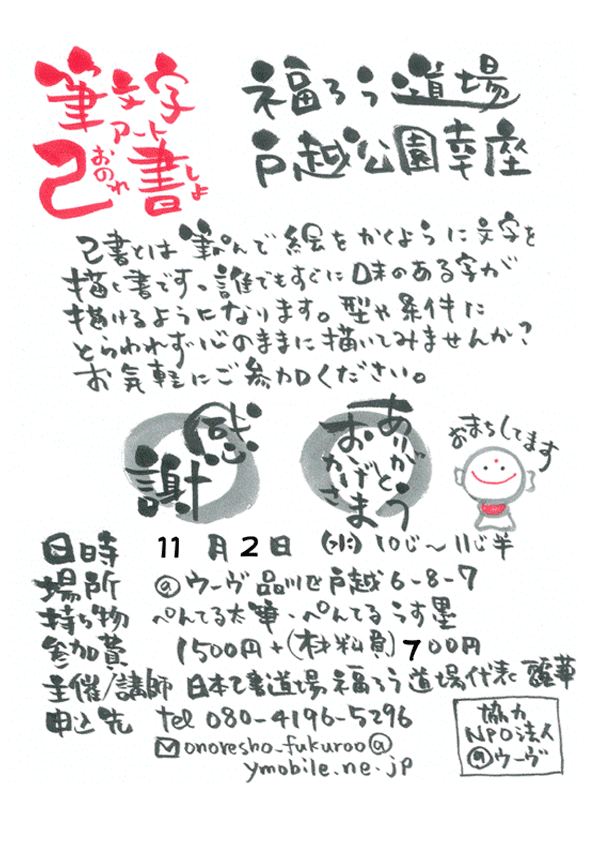 筆文字
アート
己書
おのれしょ
福ろう道場
戸越公園幸座
己書とは筆ぺんで絵をかくように文字を
描く書です。誰でもすぐに味のある字が
描けるようになります。型や条件に
とらわれず心のままに描いてみませんか?
お気軽にご参加ください。
感謝
ありがとう
おかげさま
おまちしてます
日時 11月2日 (水) 10じ~11じ半
場所 @ウーヴ 品川区戸越6-8-7
持ち物 ぺんてる太筆・ぺんてるうす墨
参加費 1500円+(材料費)700円
主催/講師 日本己書道場 福ろう道場代表 麗華
申込先 tel 080-4196-5296
onoresho_fukuroo@
ymobile.ne.jp
協力
NPO法人
@ウーヴ